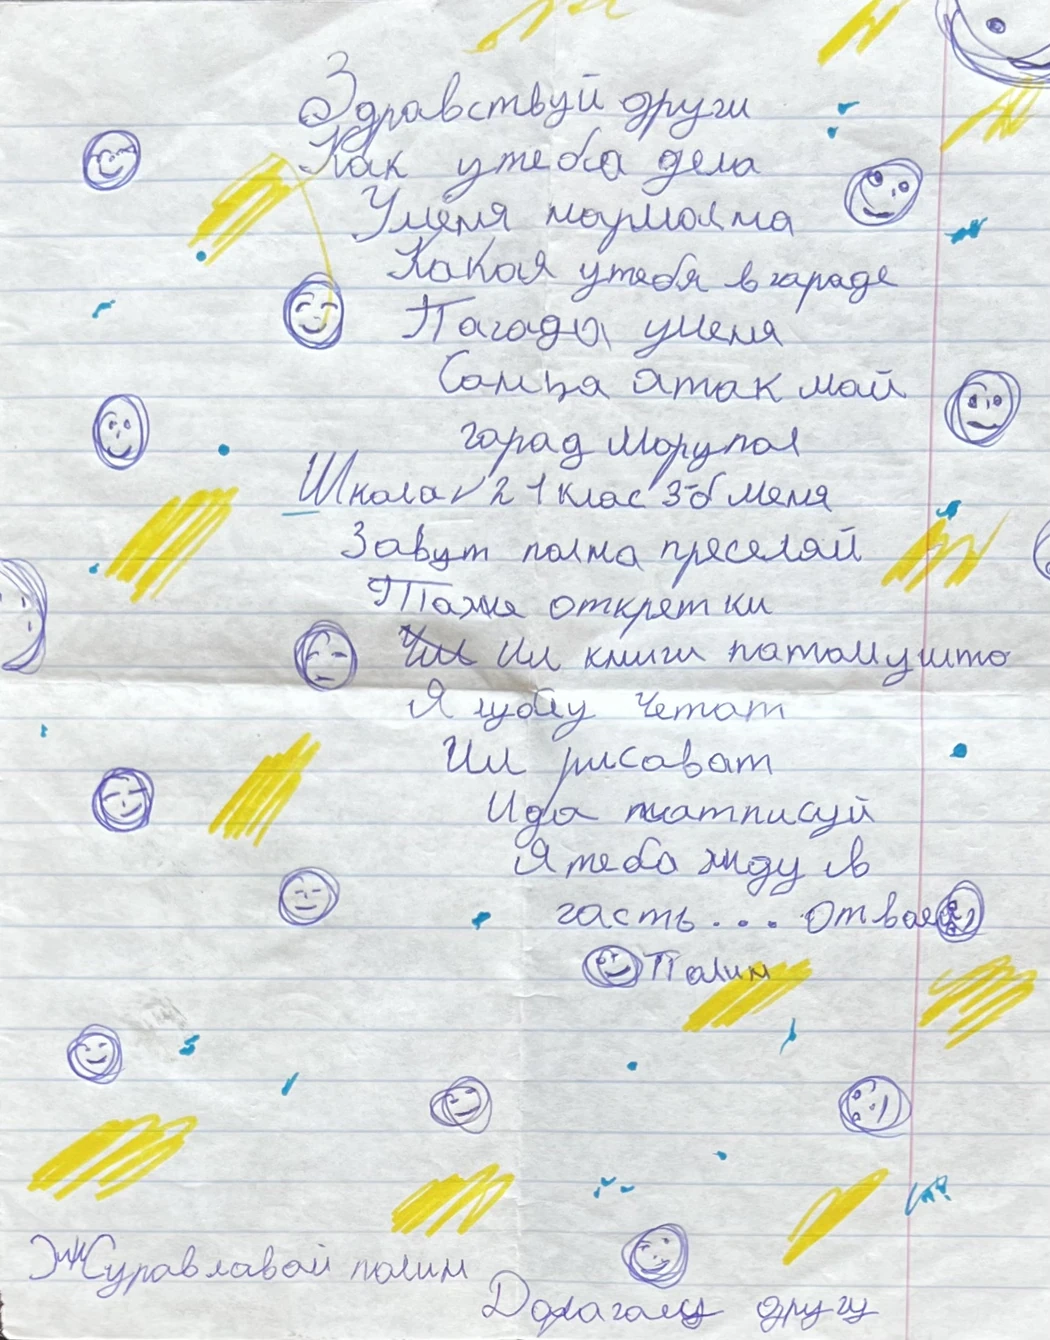 Здравствуй други
Как утеба дела
Уменя нормална
Какоя утебя в гараде
Пагада уменя
Сонца атак май
гарад Морупол
Школа 21 клас 3-б Меня
Завут полна преселяй
Тоже откретки
Ил книги патомушто
Я лублу Четат
Ил рисават
Ида патписуй
Я теба жду в
гасть... Отвае
Палин
Журавлавай полин
Дорагому другу